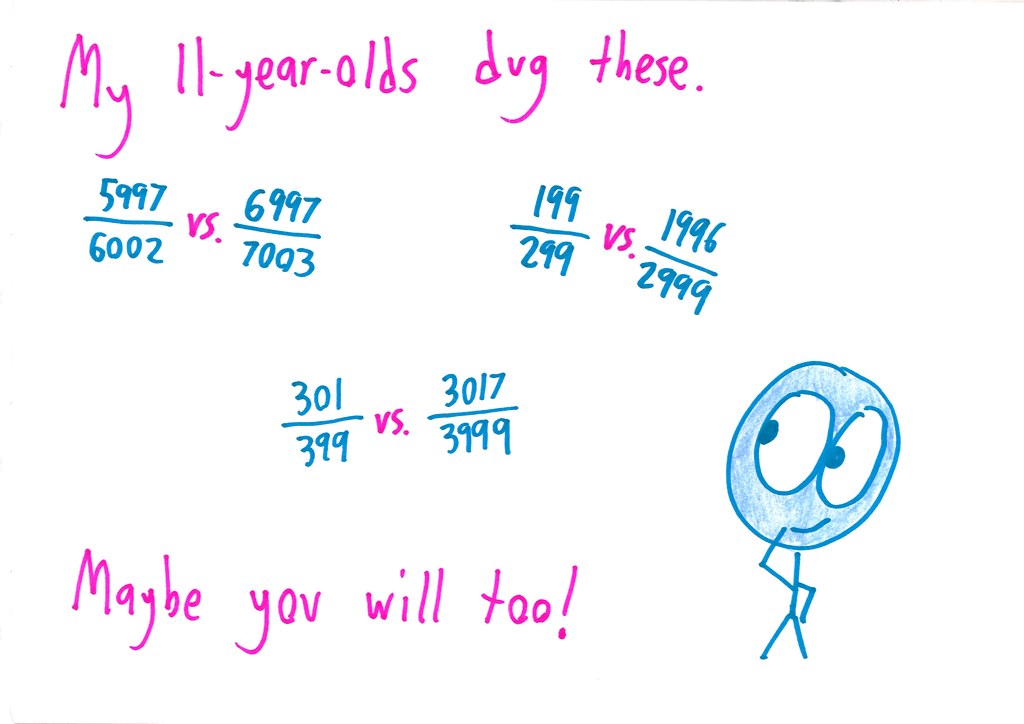 My 11-year-olds dug these.
5997/6002 vs. 6997/7003
199/299 vs. 1996/2999
301/399 vs. 3017/3999
Maybe you will too!